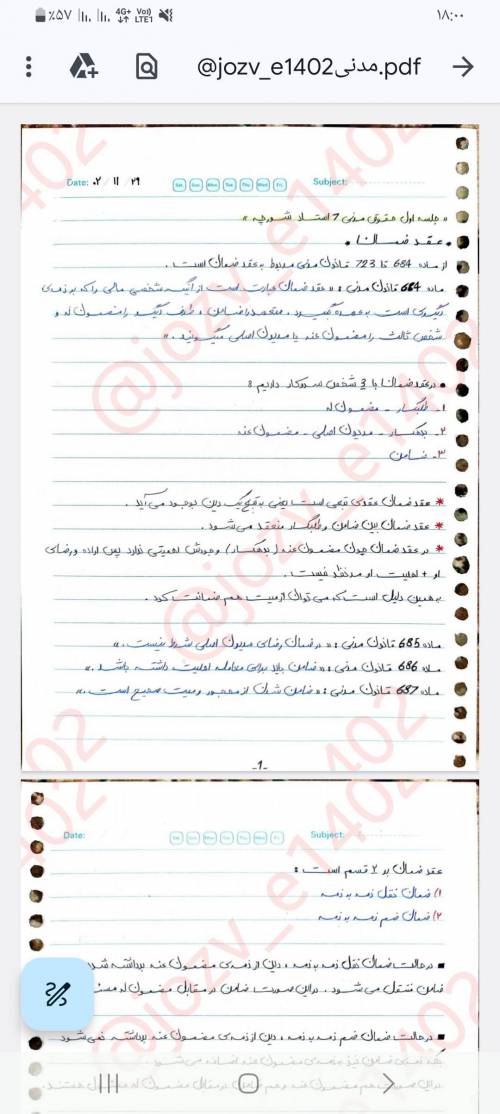 ٪۵۷ 4G+ Vo) LTE1 ۱۸:۰۰
@jozv_e1402مدنی.pdf
Date: ۰۲ / ۱۱ / ۲۹ Sat Sun Mon Tue Thu Wed Fri Subject:
« جلسه اول حقوق مدنی 7 استاد شورچه »
• عقد ضمان •
از ماده 684 تا 723 قانون مدنی مربوط به عقد ضمان است .
ماده 684 قانون مدنی : « عقد ضمان عبارت است از اینکه شخصی مالی را که بر ذمه ی
دیگری است به عهده بگیرد . متعهد را ضامن ، طرف دیگر را مضمون له و
شخص ثالث را مضمون عنه یا مدیون اصلی میگویند . »
• در عقد ضمان با 3 شخص سروکار داریم :
۱- طلبکار - مضمون له
۲- بدهکار - مدیون اصلی - مضمون عنه
۳- ضامن
* عقد ضمان عقدی تبعی است یعنی به تبع یک دین بوجود می آید .
* عقد ضمان بین ضامن و طلبکار منعقد می شود .
* در عقد ضمان چون مضمون عنه ( بدهکار ) وجودش اهمیتی ندارد پس اراده و رضای
او + اهلیت او مدنظر نیست .
به همین دلیل است که می توان از میت هم ضمانت کرد .
ماده 685 قانون مدنی : « در ضمان رضای مدیون اصلی شرط نیست . »
ماده 686 قانون مدنی : « ضامن باید برای معامله اهلیت داشته باشد . »
ماده 687 قانون مدنی : « ضامن شدن از محجور و میت صحیح است . »
-1-
Date: Sat Sun Mon Tue Thu Wed Fri Subject:
عقد ضمان بر ۲ قسم است :
۱) ضمان نقل ذمه به ذمه
۲) ضمان ضم ذمه به ذمه
▪ در حالت ضمان نقل ذمه به ذمه ، دین از ذمه ی مضمون عنه برداشته شده
ضامن منتقل می شود . در این صورت ضامن در مقابل مضمون له
▪ در حالت ضمان ضم ذمه به ذمه ، دین از ذمه ی مضمون عنه برداشته نمی شود
بلکه ذمه ی ضامن نیز به ذمه ی مضمون عنه اضافه می شود .
در این صورت هم مضمون عنه و هم ضامن در مقابل مضمون له هستند .
@jozv_e1402